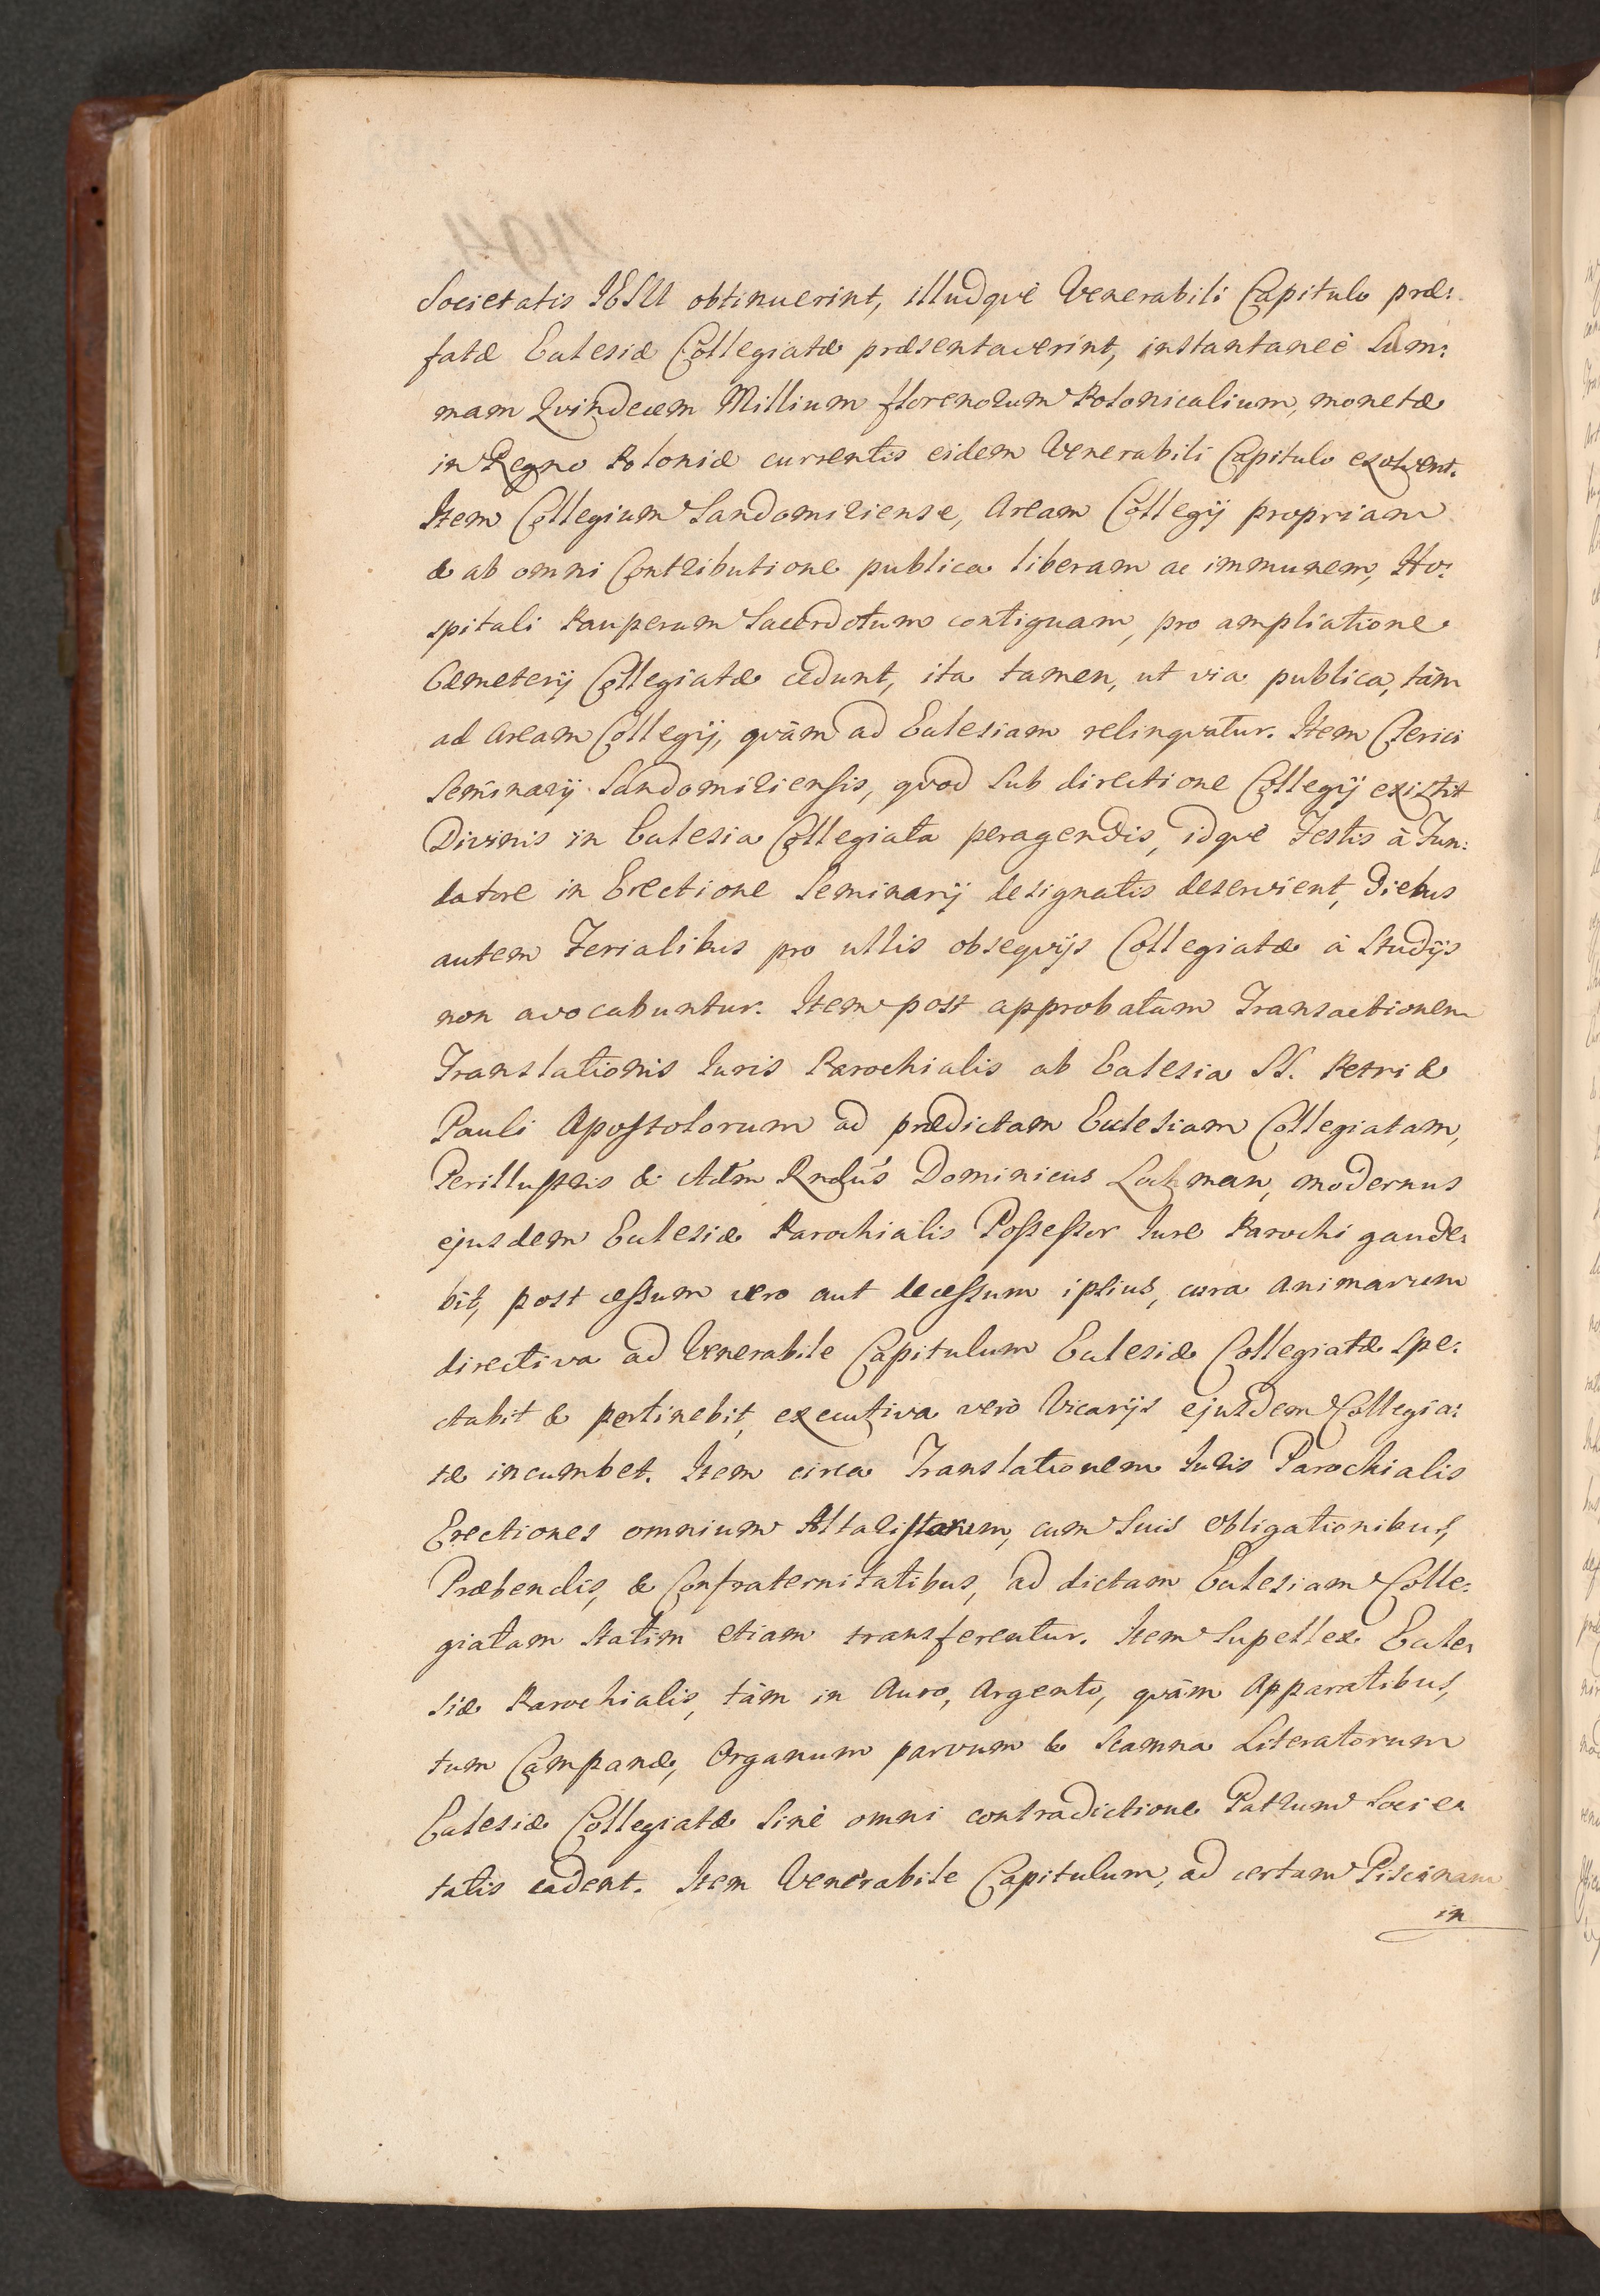 Societatis IESU obtinuerint, illudqvè Venerabili Capitulo præ:
fatæ Ecclesiæ Collegiatæ præsentaverint, instantaneè Sum:
mam Qvindecem Millium florenorum Polonicalium, monetæ
in Regno Poloniæ currentis eidem Venerabili Capitulo exolvent.
Item Collegium Sandomiriense, Aream Collegij propriam
& ab omni Contributione publica liberam ac immunem, Ho:
spitali Pauperum Sacerdotum contiguam, pro ampliatione
Cæmeterij Collegiatæ cedunt, ita tamen, ut via publica, tàm
ad Aream Collegij, qvàm ad Ecclesiam relinqvatur. Item Clerici
Seminarij Sandomiriensis, qvod sub directione Collegij existit
Divinis in Ecclesia Collegiata peragendis, idqvè Festis à Fun:
datore in Erectione Seminarij designatis deservient, Diebus
autem Ferialibus pro ullis obseqvijs Collegiatæ à Studijs
non avocabuntur. Item post approbatam Transactionem
Translationis Iuris Parochialis ab Ecclesia SS. Petri &
Pauli Apostolorum ad prædictam Ecclesiam Collegiatam,
Perillustris & Adm Rndus Dominicus Lochman, modernus
ejusdem Ecclesiæ Parochialis Possessor Iure Parochi gaude:
bit, post cessum vero aut decessum ipsius, cura animarum
directiva ad Venerabile Capitulum Ecclesiæ Collegiatæ spe:
ctabit & pertinebit, executiva verò Vicarijs ejusdem Collegia:
tæ incumbet. Item circa Translationem Iuris Parochialis
Erectiones omnium Altaristarum, cum suis obligationibus,
Præbendis, & Confraternitatibus, ad dictam Ecclesiam Colle:
giatam statim etiam transferentur. Item Supellex Eccle:
siæ Parochialis, tàm in Auro, Argento, qvàm Apparatibus,
tum Campanæ, Organum parvum & Scamna Literatorum
Ecclesiæ Collegiatæ sinè omni contradictione Patrum Socie:
tatis cadent. Item Venerabile Capitulum, ad certam Piscinam
in